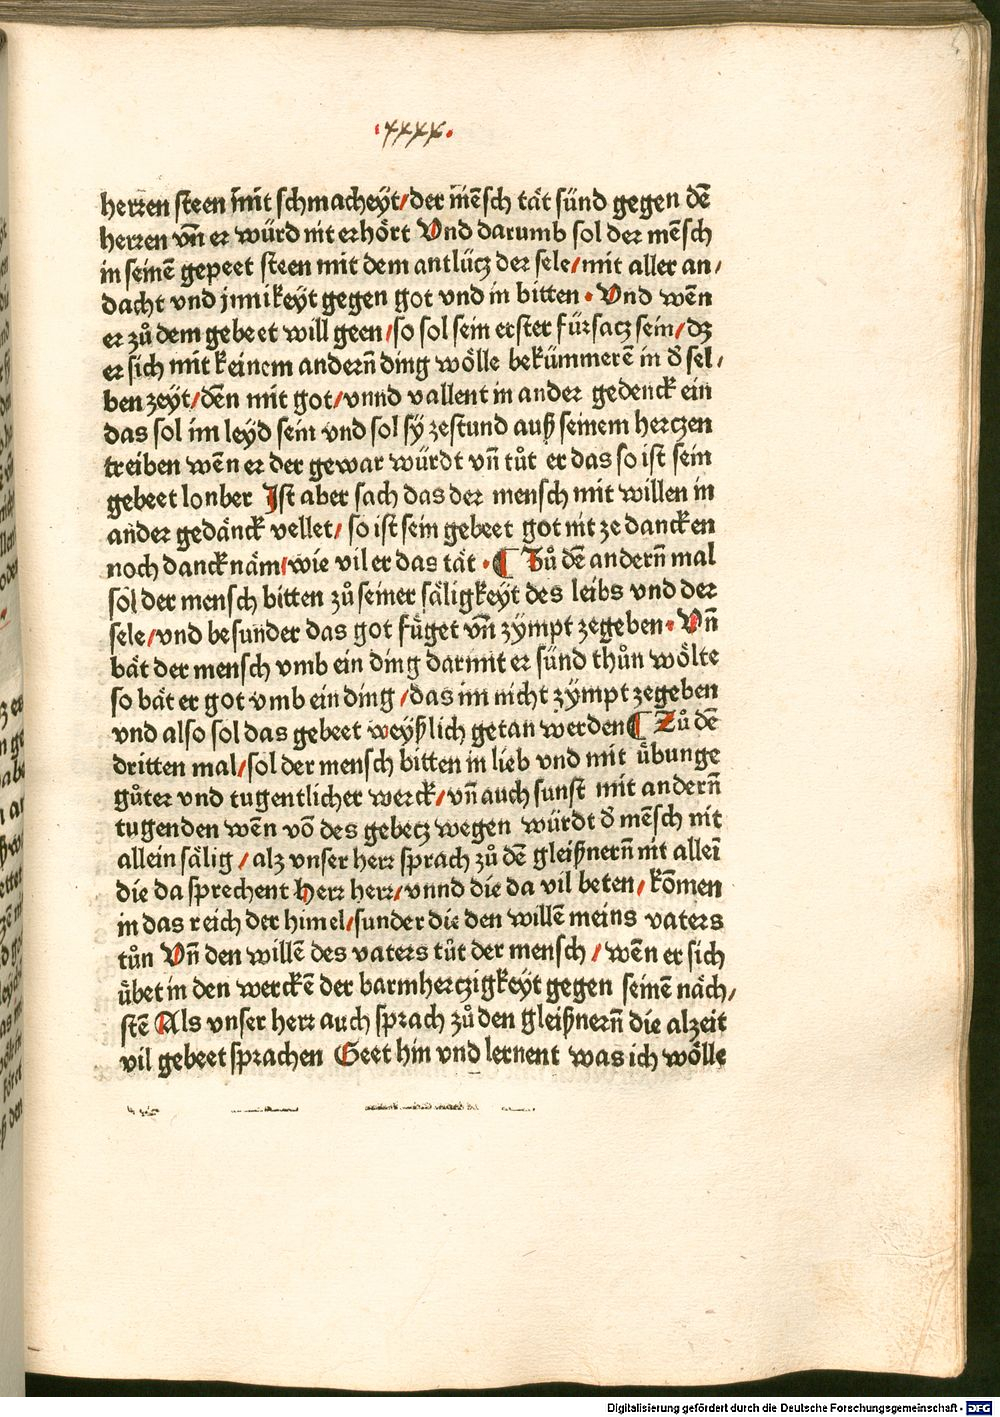 ·xxxx·
herren steen mit schmacheyt/der mēsch tät sünd gegen dē
herren vn̄ er würd nit erhört Vnd darumb sol der mēsch
in seinē gepeet steen mit dem antlücz der sele/mit aller an/
dacht vnd jnnikeyt gegen got vnd in bitten · Vnd wēn
er zů dem gebeet will geen/so sol sein erster fürsacz sein/dz
er sich mit keinem andern̄ ding wölle bekümmerē in d̄ sel/
ben zeyt/dēn mit got/vnnd vallent in ander gedenck ein
das sol im leyd sein vnd sol sÿ zestund auß seinem herczen
treiben wēn er der gewar würdt vn̄ tůt er das so ist sein
gebeet lonber Ist aber sach das der mensch mit willen in
ander gedänck vellet/ so ist sein gebeet got nit ze dancken
noch dancknäm/wie vil er das tät · ¶ Zů dē andern̄ mal
sol der mensch bitten zů seiner säligkeyt des leibs vnd der
sele/vnd besunder das got füget vn̄ zympt zegeben· Vn̄
bät der mensch vmb ein ding darmit er sünd thůn wölte
so bät er got vmb ein ding /das im nicht zympt zegeben
vnd also sol das gebeet weyßlich getan werden ¶ Zů dē
dritten mal/sol der mensch bitten in lieb vnd mit übunge
gůter vnd tugentlicher werck/vn̄ auch sunst mit andern̄
tugenden wēn vō des gebecz wegen würdt d̄ mēsch nit
allein sälig /alz vnser herr sprach zů dē gleißnern̄ nit alleī
die da sprechent herr herr/vnnd die da vil beten/kōmen
in das reich der himel/sunder die den willē meins vaters
tůn Vn̄ den willē des vaters tůt der mensch /wēn er sich
übet in den werckē der barmherczigkeyt gegen seinē näch/
stē Als vnser herr auch sprach zů den gleißnern̄ die alzeit
vil gebeet sprachen Geet hin vnd lernent was ich wölle
Digitalisierung gefördert durch die Deutsche Forschungsgemeinschaft - DFG